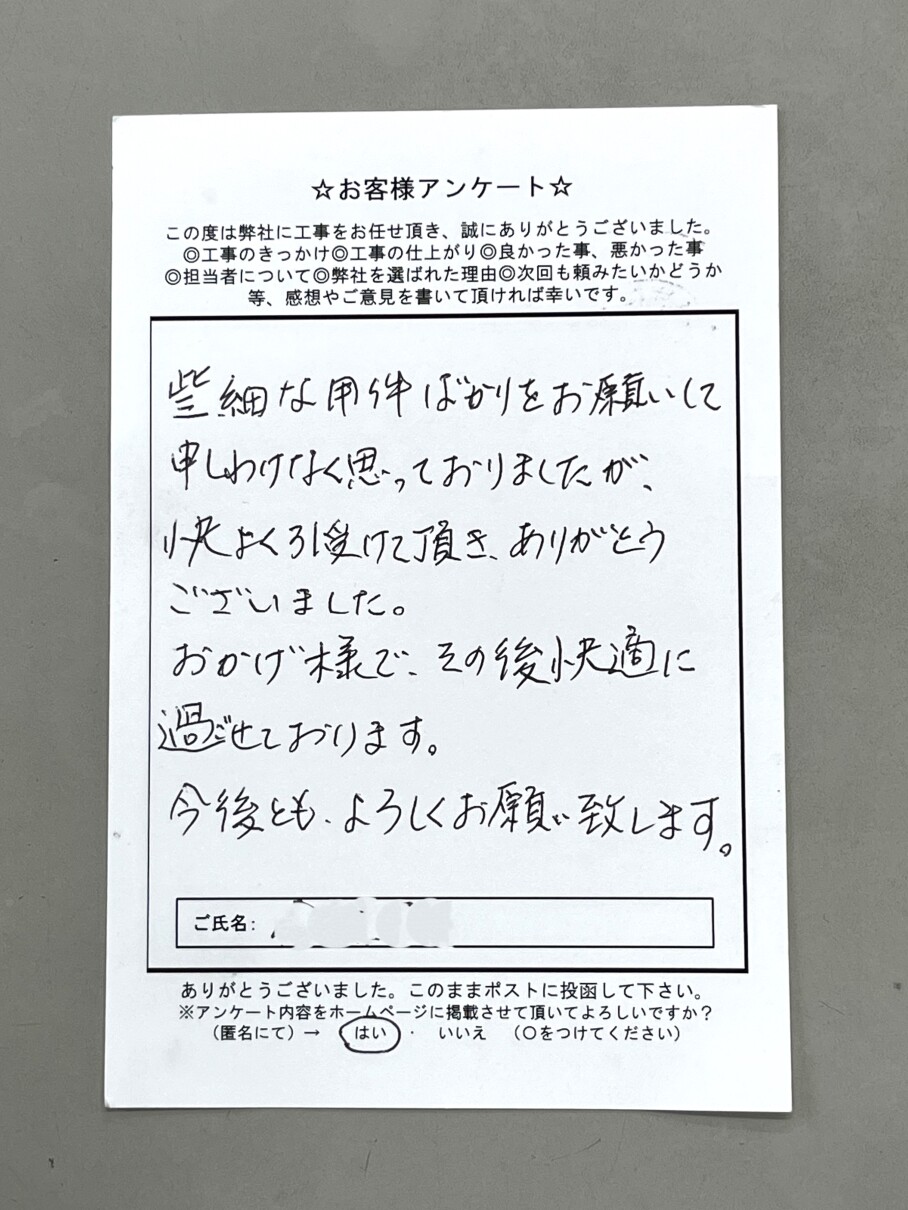 ☆お客様アンケート☆
この度は弊社に工事をお任せ頂き、誠にありがとうございました。
◎工事のきっかけ◎工事の仕上がり◎良かった事、悪かった事
◎担当者について◎弊社を選ばれた理由◎次回も頼みたいかどうか
等、感想やご意見を書いて頂ければ幸いです。
些細な用件ばかりをお願いして
申しわけなく思っておりましたが、
快よく引受けて頂き、ありがとう
ございました。
おかげ様で、その後快適に
過ごせております。
今後とも、よろしくお願い致します。
ご氏名:
ありがとうございました。このままポストに投函して下さい。
※アンケート内容をホームページに掲載させて頂いてよろしいですか?
(匿名にて)→ はい ・ いいえ (○をつけてください)